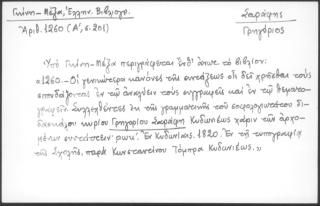 Γκίνη-Μέξα, Ἑλλην. Βιβλιογρ.
Ἀριθ. 1260 (Α', σ. 201)
Σαράφης
Γρηγόριος
Ὑπὸ Γκίνη-Μέξα περιγράφεται ἐνθ' ἄνω τὸ βιβλίον:
«1260.- Οἱ γενικώτεροι κανόνες τῆς συντάξεως οἷς δεῖ χρῆσθαι τοὺς
σπουδάζοντας ἐν τῷ ἀναγινώσκειν τοὺς συγγραφεῖς καὶ ἐν τῷ θεματο-
γραφεῖν. Συλλεχθέντες ἐκ τῆς γραμματικῆς τοῦ σοφολογιωτάτου δι-
δασκάλου κυρίου Γρηγορίου Σαράφη Κυδωνιέως χάριν τῶν ἀρχο-
μένων συντάττειν. Ἐν Κυδωνίαις. 1820. Ἐν τῇ τυπογραφίᾳ
τῆς Σχολῆς, παρὰ Κωνσταντίνου Τόμπρα Κυδωνιέως.»